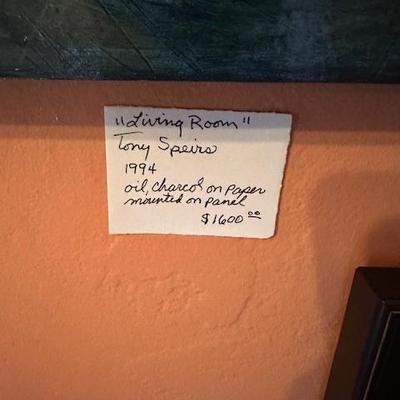 "Living Room"
Tony Speirs
1994
oil, charcol on paper
mounted on panel
$1600.00